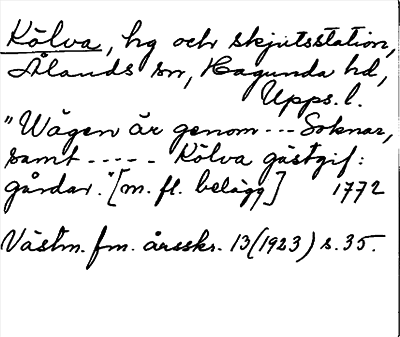 Kölva, hg och skjutsstation,
Ålands sn, Hagunda hd,
Upps. l.
"Wägen är genom --- Soknar,
samt ----- Kölva gästgif:
gårdar." [m. fl. belägg] 1772
Västm. fm. årsskr. 13 (1923) s. 35.